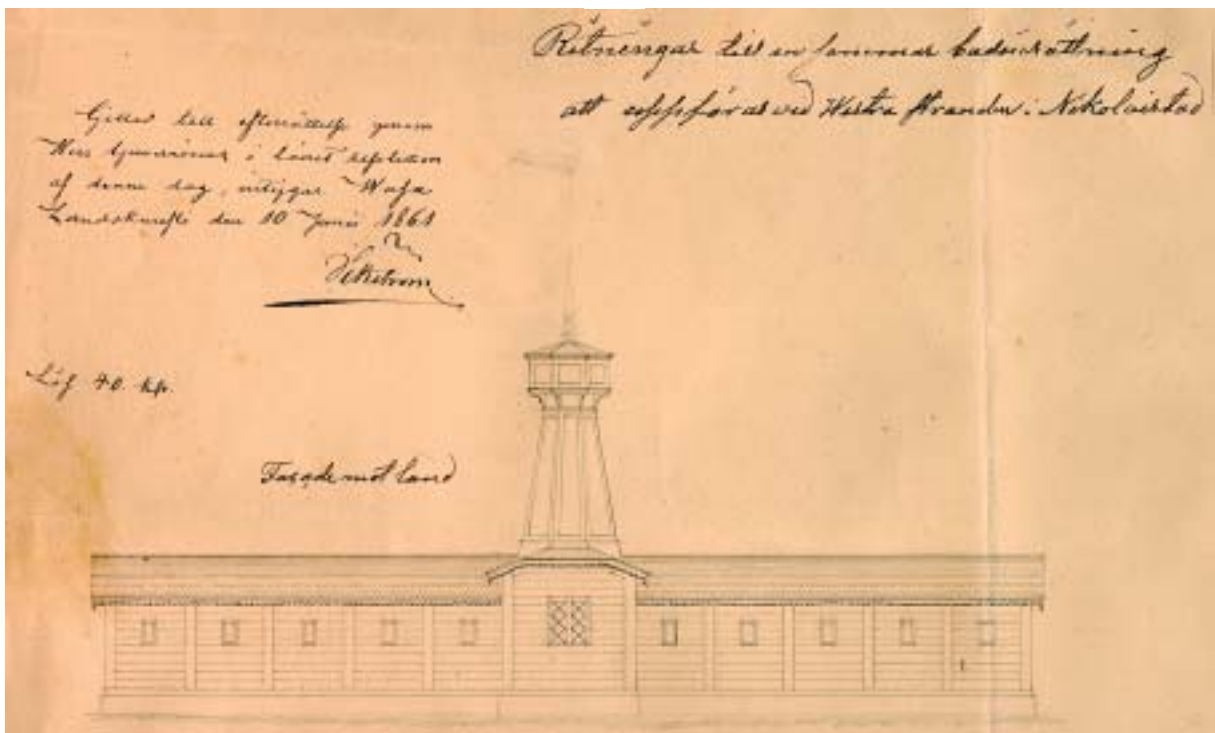 Ritningar till en sommar badinrättning
att uppföras vid Westra stranden i Nikolaistad
Gillas till efterrättelse genom
i länet resolution
af denna dag, intygar Wasa
Landskansli den 10 Junii 1861
Löf 40. kp.
Façade mot land